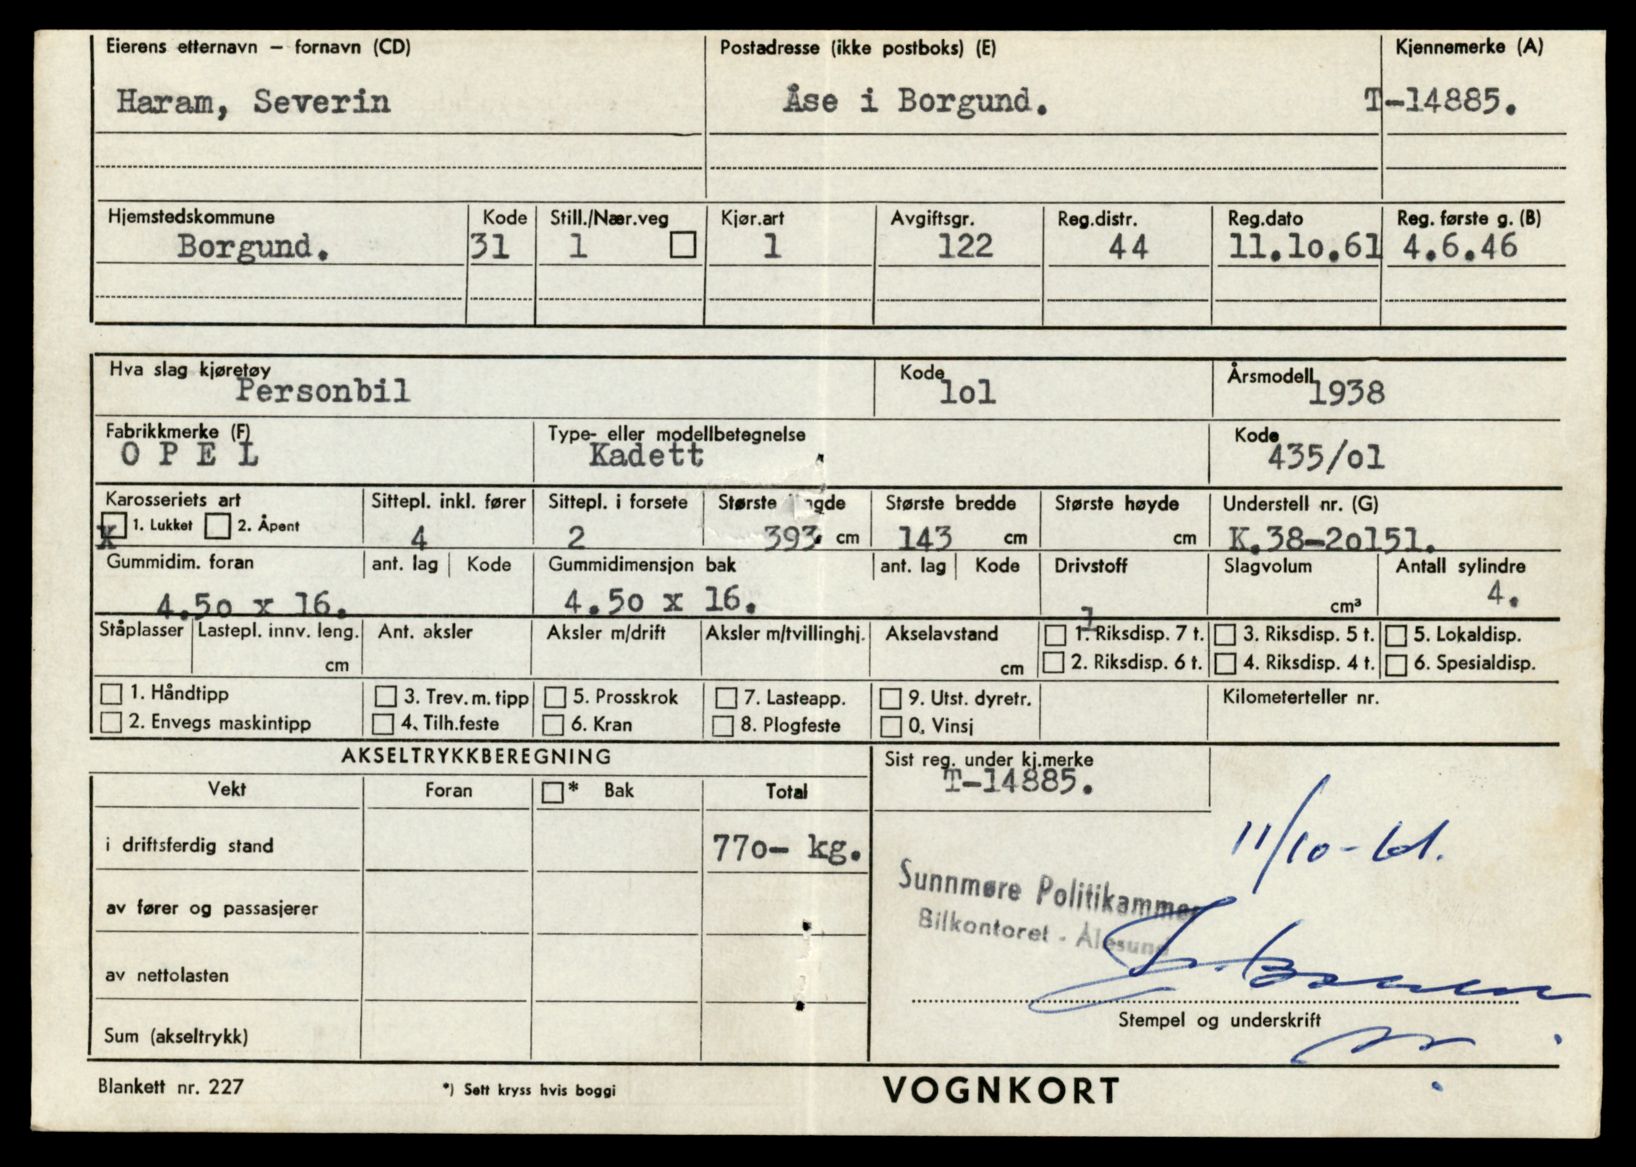 Eierens etternavn – fornavn (CD) Postadresse (ikke postboks) (E) Kjennemerke (A)
Haram, Severin Åse i Borgund. T-14885.
Hjemstedskommune Kode Still./Nær.veg Kjør.art Avgiftsgr. Reg.distr. Reg.dato Reg. første g. (B)
Borgund. 31 1 1 122 44 11.1o.61 4.6.46
Hva slag kjøretøy Kode Årsmodell
Personbil 1o1 1938
Fabrikkmerke (F) Type- eller modellbetegnelse Kode
O P E L Kadett 435/o1
Karosseriets art Sittepl. inkl. fører Sittepl. i forsete Største Største bredde Største høyde Understell nr. (G)
X 1. Lukket 2. Åpent 4 2 393 cm 143 cm cm K.38-2o151.
Gummidim. foran ant. lag Kode Gummidimensjon bak ant. lag Kode Drivstoff Slagvolum Antall sylindre
4.5o x 16. 4.5o x 16. 1 cm³ 4.
Ståplasser Lastepl. innv. leng. Ant. aksler Aksler m/drift Aksler m/tvillinghj. Akselavstand 1. Riksdisp. 7 t. 3. Riksdisp. 5 t. 5. Lokaldisp.
cm cm 2. Riksdisp. 6 t. 4. Riksdisp. 4 t. 6. Spesialdisp.
1. Håndtipp 3. Trev. m. tipp 5. Prosskrok 7. Lasteapp. 9. Utst. dyretr. Kilometerteller nr.
2. Envegs maskintipp 4. Tilh.feste 6. Kran 8. Plogfeste 0. Vinsj
AKSELTRYKKBEREGNING Sist reg. under kj.merke
T-14885.
Vekt Foran * Bak Total
i driftsferdig stand 77o- kg.
11/10-61.
Sunnmøre Politikammer
av fører og passasjerer
Bilkontoret - Ålesund
av nettolasten
Stempel og underskrift
Sum (akseltrykk)
Blankett nr. 227 *) Sett kryss hvis boggi VOGNKORT